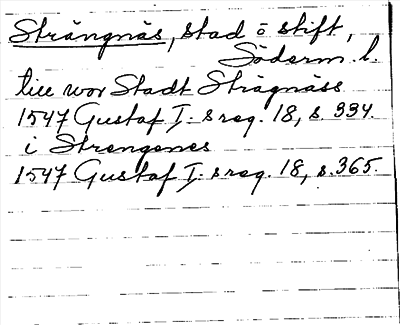 Strängnäs, stad o stift,
Söderm. l.
till wor Stadt Strägnäss
1547 Gustaf I. s reg. 18, s. 334.
i Strengenes
1547 Gustaf I. s reg. 18, s. 365.